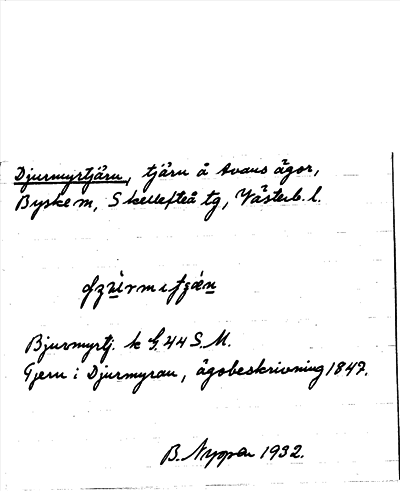 Djurmyrtjärn, tjärn å Avans ägor,
Byske m, Skellefteå tg, Västerb. l.
Bjurmyrtj. k G.44 S.M.
Tjern i Djurmyran, ägobeskrivning 1847.
B. Nyman 1932.